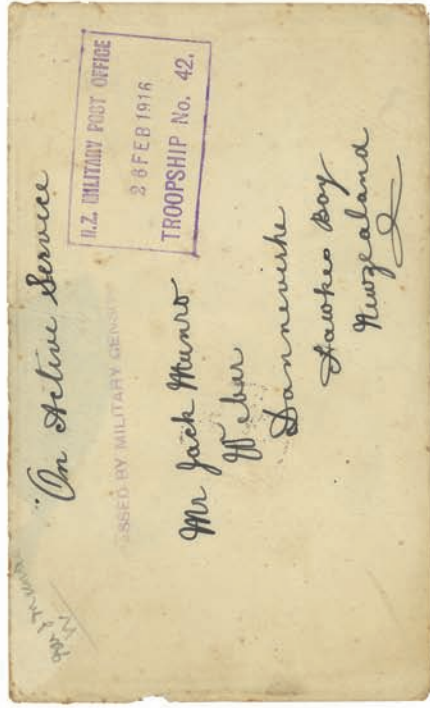 "On Active Service
N.Z. MILITARY POST OFFICE
28 FEB 1916
TROOPSHIP No. 42.
ASSED BY MILITARY CENSOR
Mr Jack Munro
Weber
Dannevirke
Hawkes Bay
Newzealand